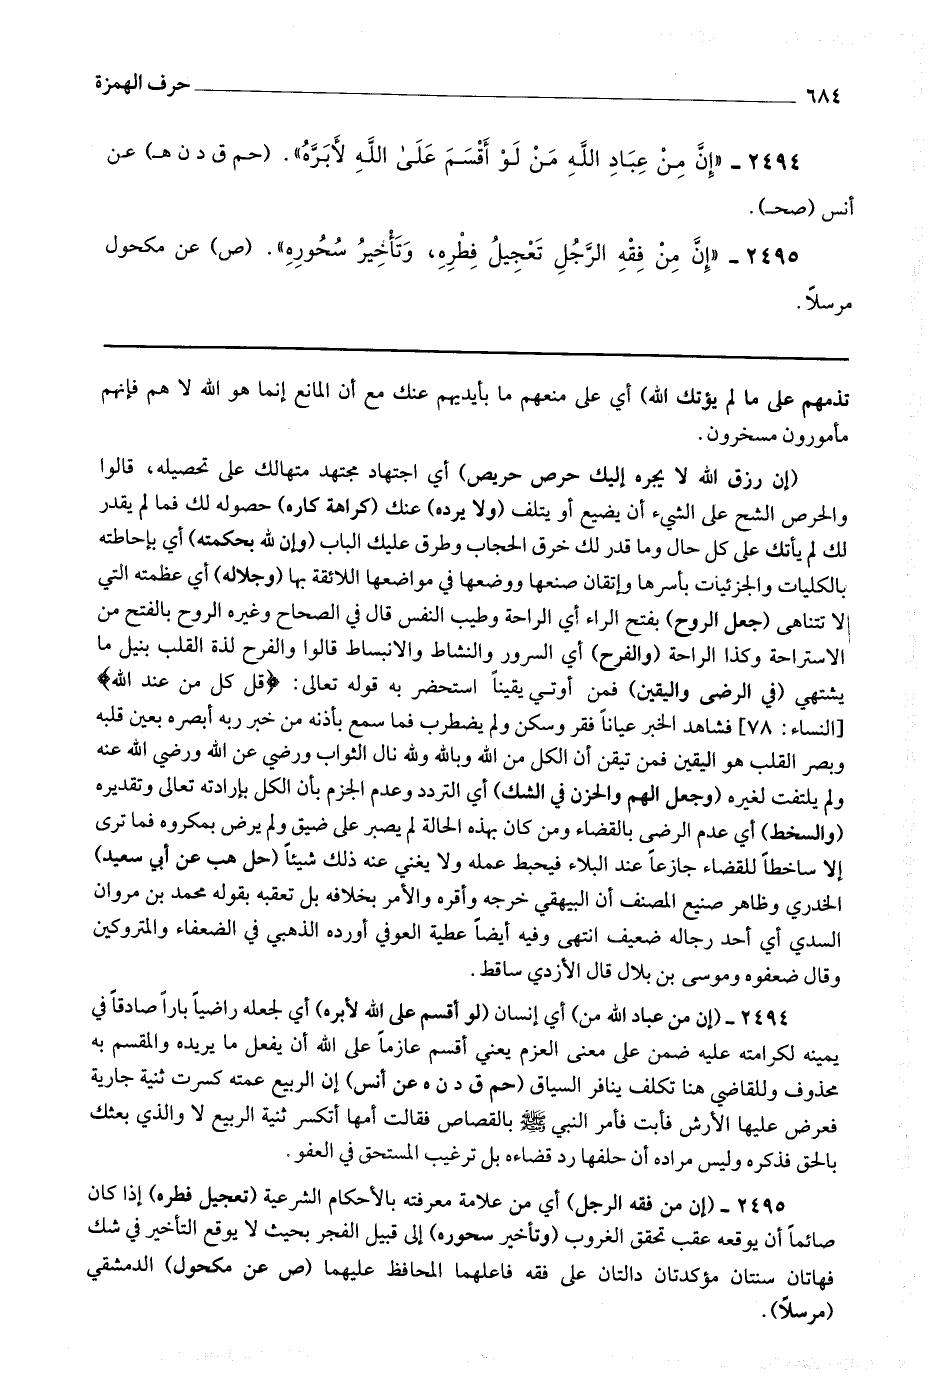 ٦٨٤ حرف الهمزة
٢٤٩٤ ـ «إِنَّ مِنْ عِبَادِ اللَّهِ مَنْ لَوْ أَقْسَمَ عَلَىٰ اللَّهِ لأَبَرَّهُ». (حم ق د ن هـ) عن
أنس (صحـ).
٢٤٩٥ ـ «إِنَّ مِنْ فِقْهِ الرَّجُلِ تَعْجِيلُ فِطْرِهِ، وَتَأْخِيرُ سُحُورِهِ». (ص) عن مكحول
مرسلاً.
تذمهم على ما لم يؤتك الله) أي على منعهم ما بأيديهم عنك مع أن المانع إنما هو الله لا هم فإنهم
مأمورون مسخرون.
(إن رزق الله لا يجره إليك حرص حريص) أي اجتهاد مجتهد متهالك على تحصيله، قالوا
والحرص الشح على الشيء أن يضيع أو يتلف (ولا يرده) عنك (كراهة كاره) حصوله لك فما لم يقدر
لك لم يأتك على كل حال وما قدر لك خرق الحجاب وطرق عليك الباب (وإن لله بحكمته) أي بإحاطته
بالكليات والجزئيات بأسرها وإتقان صنعها ووضعها في مواضعها اللائقة بها (وجلاله) أي عظمته التي
لا تتناهى (جعل الروح) بفتح الراء أي الراحة وطيب النفس قال في الصحاح وغيره الروح بالفتح من
الاستراحة وكذا الراحة (والفرح) أي السرور والنشاط والانبساط قالوا والفرح لذة القلب بنيل ما
يشتهي (في الرضى واليقين) فمن أوتي يقيناً استحضر به قوله تعالى: ﴿قل كل من عند الله﴾
[النساء: ٧٨] فشاهد الخبر عياناً فقر وسكن ولم يضطرب فما سمع بأذنه من خبر ربه أبصره بعين قلبه
وبصر القلب هو اليقين فمن تيقن أن الكل من الله وبالله ولله نال الثواب ورضي عن الله ورضي الله عنه
ولم يلتفت لغيره (وجعل الهم والحزن في الشك) أي التردد وعدم الجزم بأن الكل بإرادته تعالى وتقديره
(والسخط) أي عدم الرضى بالقضاء ومن كان بهذه الحالة لم يصبر على ضيق ولم يرض بمكروه فما ترى
إلا ساخطاً للقضاء جازعاً عند البلاء فيحبط عمله ولا يغني عنه ذلك شيئاً (حل هب عن أبي سعيد)
الخدري وظاهر صنيع المصنف أن البيهقي خرجه وأقره والأمر بخلافه بل تعقبه بقوله محمد بن مروان
السدي أي أحد رجاله ضعيف انتهى وفيه أيضاً عطية العوفي أورده الذهبي في الضعفاء والمتروكين
وقال ضعفوه وموسى بن بلال قال الأزدي ساقط.
٢٤٩٤ ـ (إن من عباد الله من) أي إنسان (لو أقسم على الله لأبره) أي لجعله راضياً باراً صادقاً في
يمينه لكرامته عليه ضمن على معنى العزم يعني أقسم عازماً على الله أن يفعل ما يريده والمقسم به
محذوف وللقاضي هنا تكلف ينافر السياق (حم ق د ن ه عن أنس) إن الربيع عمته كسرت ثنية جارية
فعرض عليها الأرش فأبت فأمر النبي ﷺ بالقصاص فقالت أمها أتكسر ثنية الربيع لا والذي بعثك
بالحق فذكره وليس مراده أن حلفها رد قضاءه بل ترغيب المستحق في العفو.
٢٤٩٥ ـ (إن من فقه الرجل) أي من علامة معرفته بالأحكام الشرعية (تعجيل فطره) إذا كان
صائماً أن يوقعه عقب تحقق الغروب (وتأخير سحوره) إلى قبيل الفجر بحيث لا يوقع التأخير في شك
فهاتان سنتان مؤكدتان دالتان على فقه فاعلهما المحافظ عليهما (ص عن مكحول) الدمشقي
(مرسلاً).